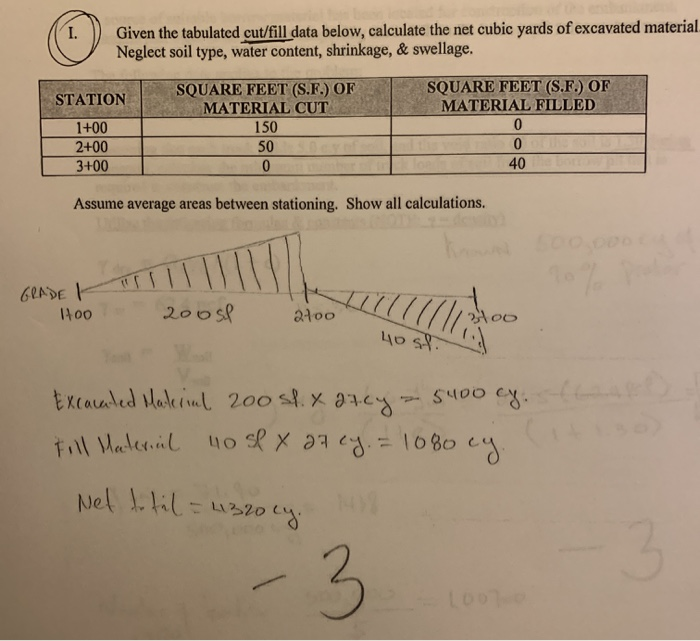 I. Given the tabulated cut/fill data below, calculate the net cubic yards of excavated material
Neglect soil type, water content, shrinkage, & swellage.
STATION SQUARE FEET (S.F.) OF MATERIAL CUT SQUARE FEET (S.F.) OF MATERIAL FILLED
1+00 150 0
2+00 50 0
3+00 0 40
Assume average areas between stationing. Show all calculations.
GRADE
1+00 200 sf 2+00 3+00
40 sf.
Excavated Material 200 sf. x 27cy = 5400 cy.
Fill Material 40 sf x 27 cy. = 1080 cy
Net total = 4320 cy.
-3